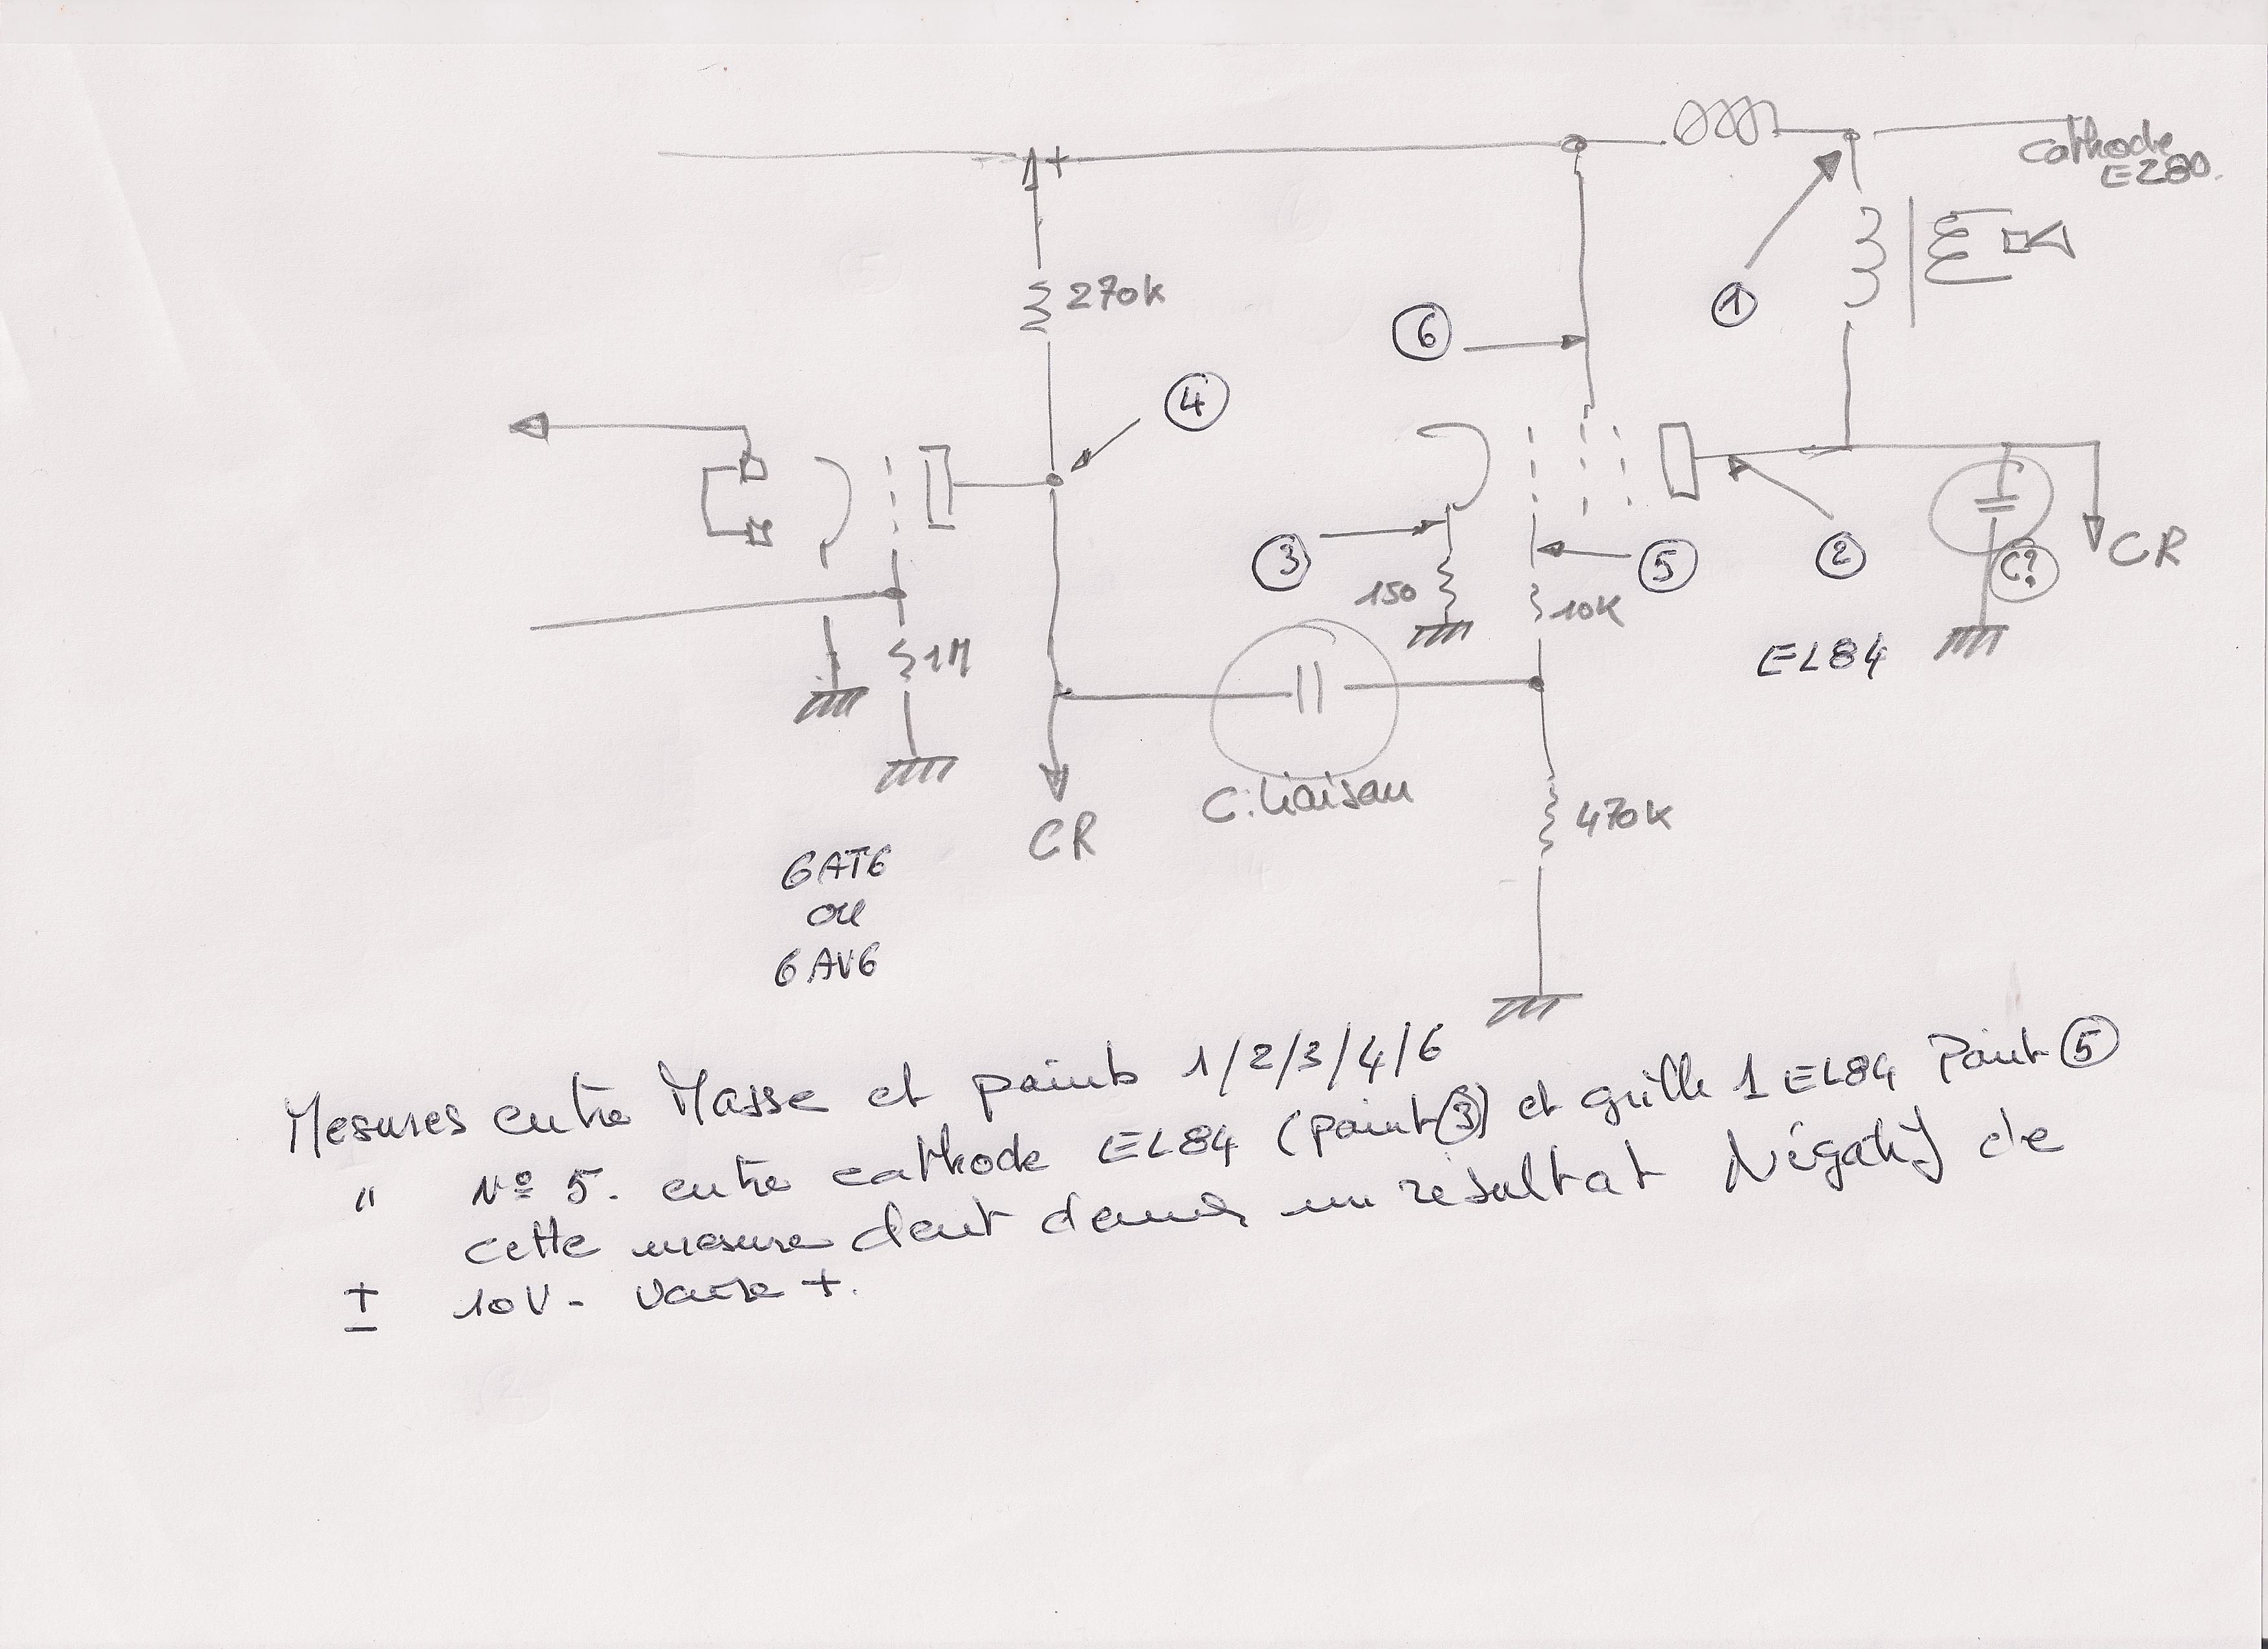 cathode
EZ80.
+
270k
6
1
4
3
5
2
C?
CR
150
10K
1M
EL84
C. liaison
470k
CR
6AT6
ou
6AV6
Mesures entre Masse et points 1/2/3/4/6
" Nº 5. entre cathode EL84 (point 3) et grille 1 EL84 Point 5
cette mesure doit donner un résultat Négatif de
± 10V - voire +.